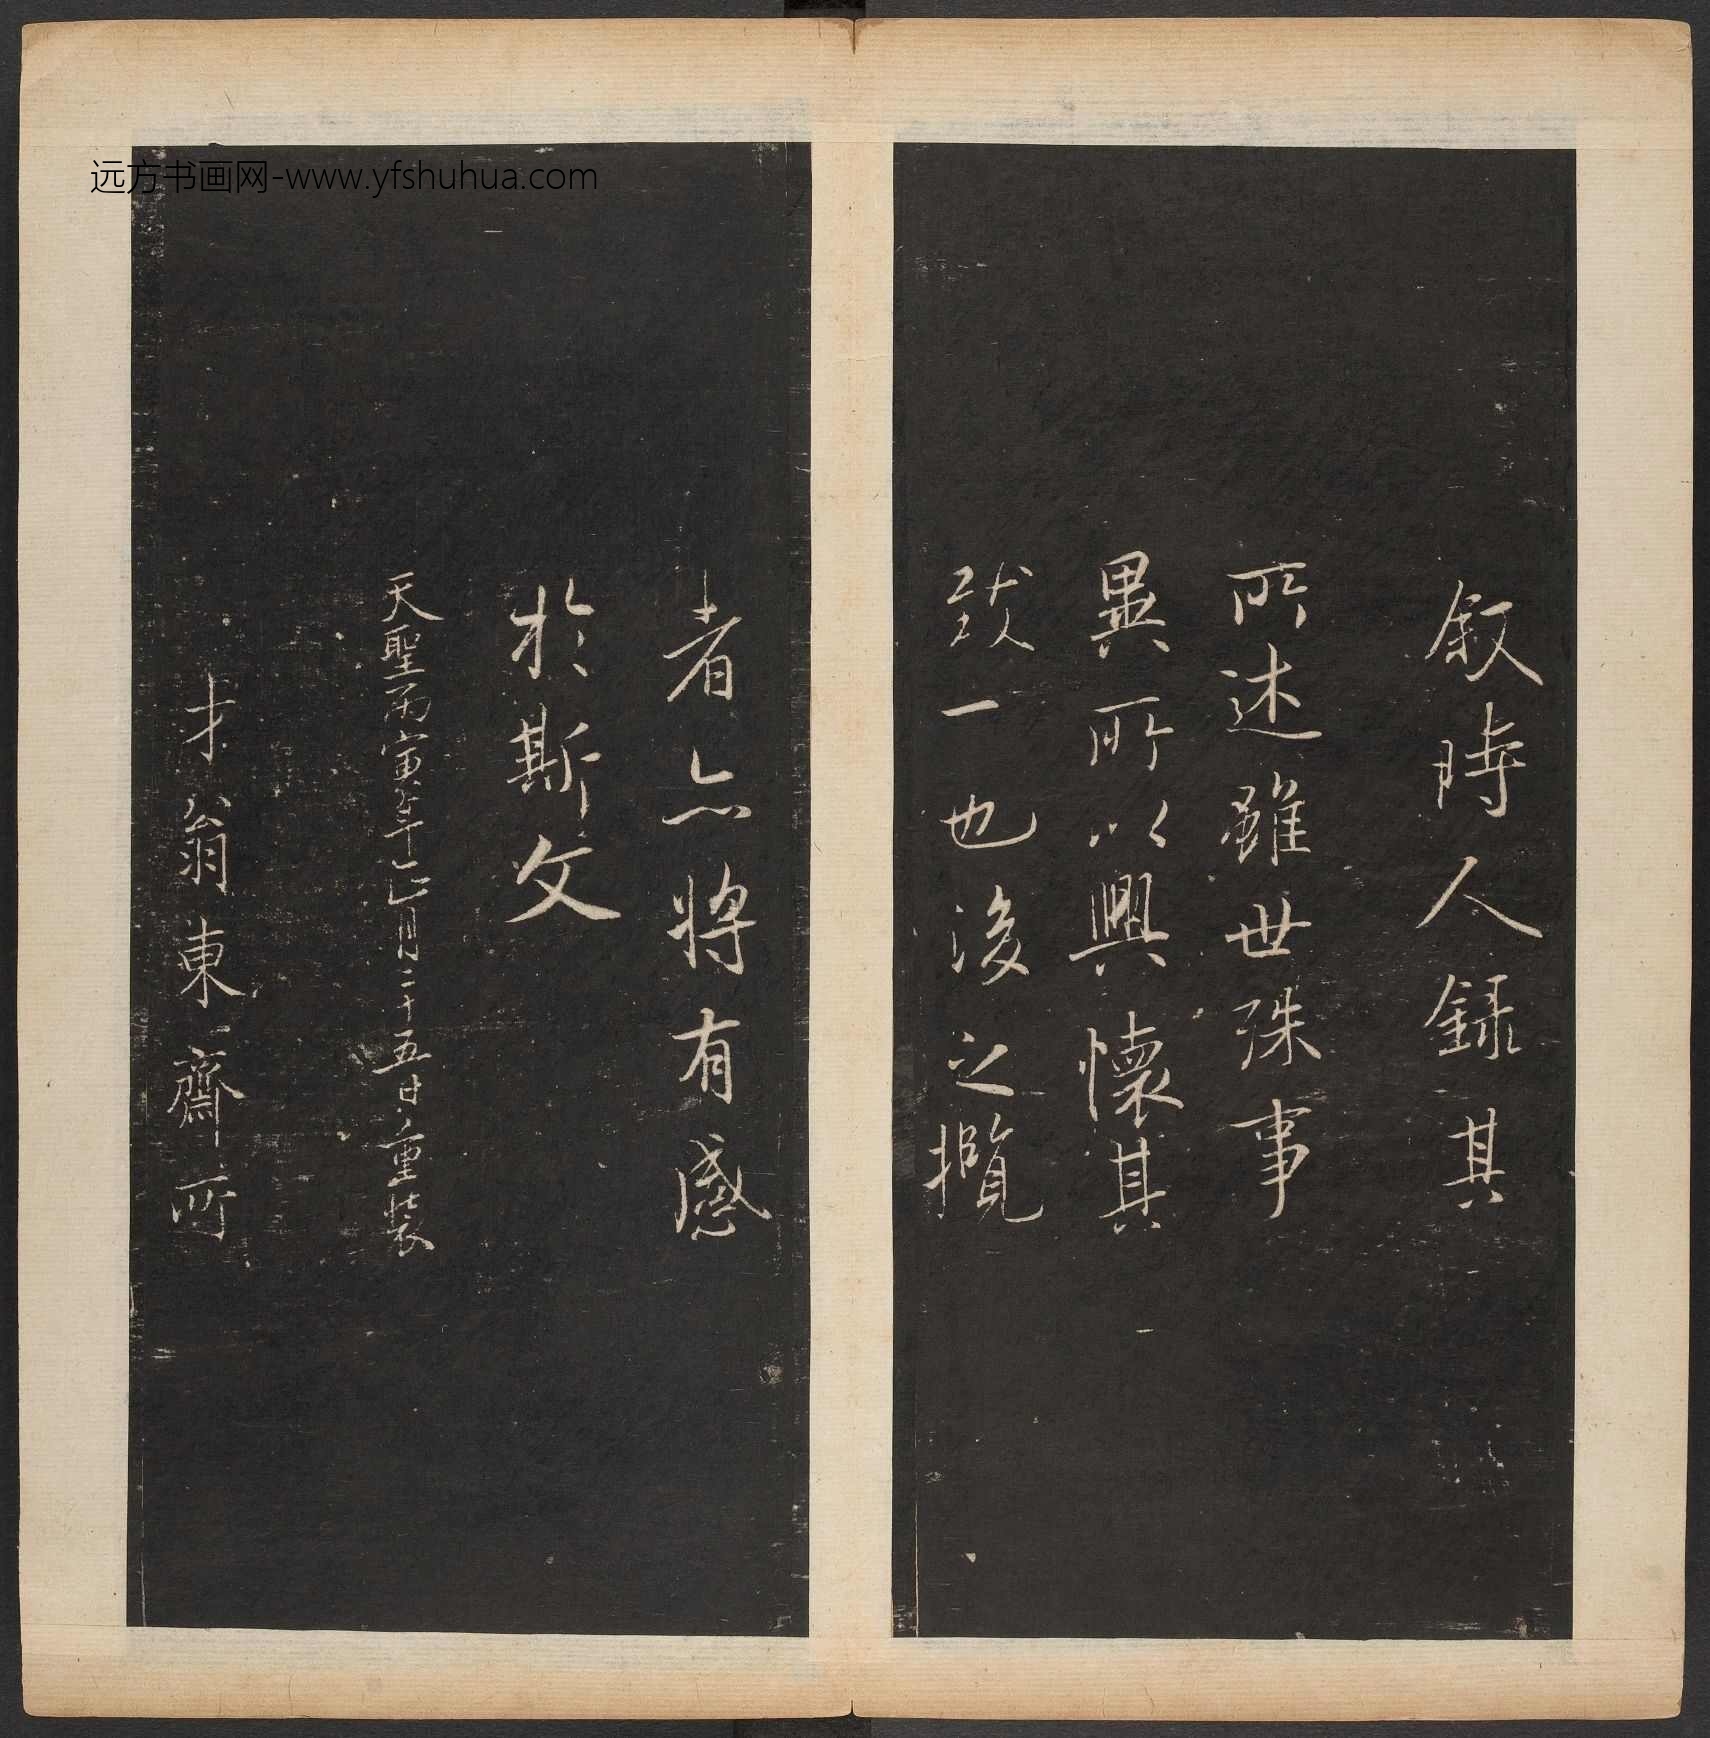 远方书画网-www.yfshuhua.com
叙時人録其
所述雖世殊事
異所以興懷其
致一也後之攬
者亦將有感
於斯文
天聖丙寅年正月二十五日重裝
才翁東齋所